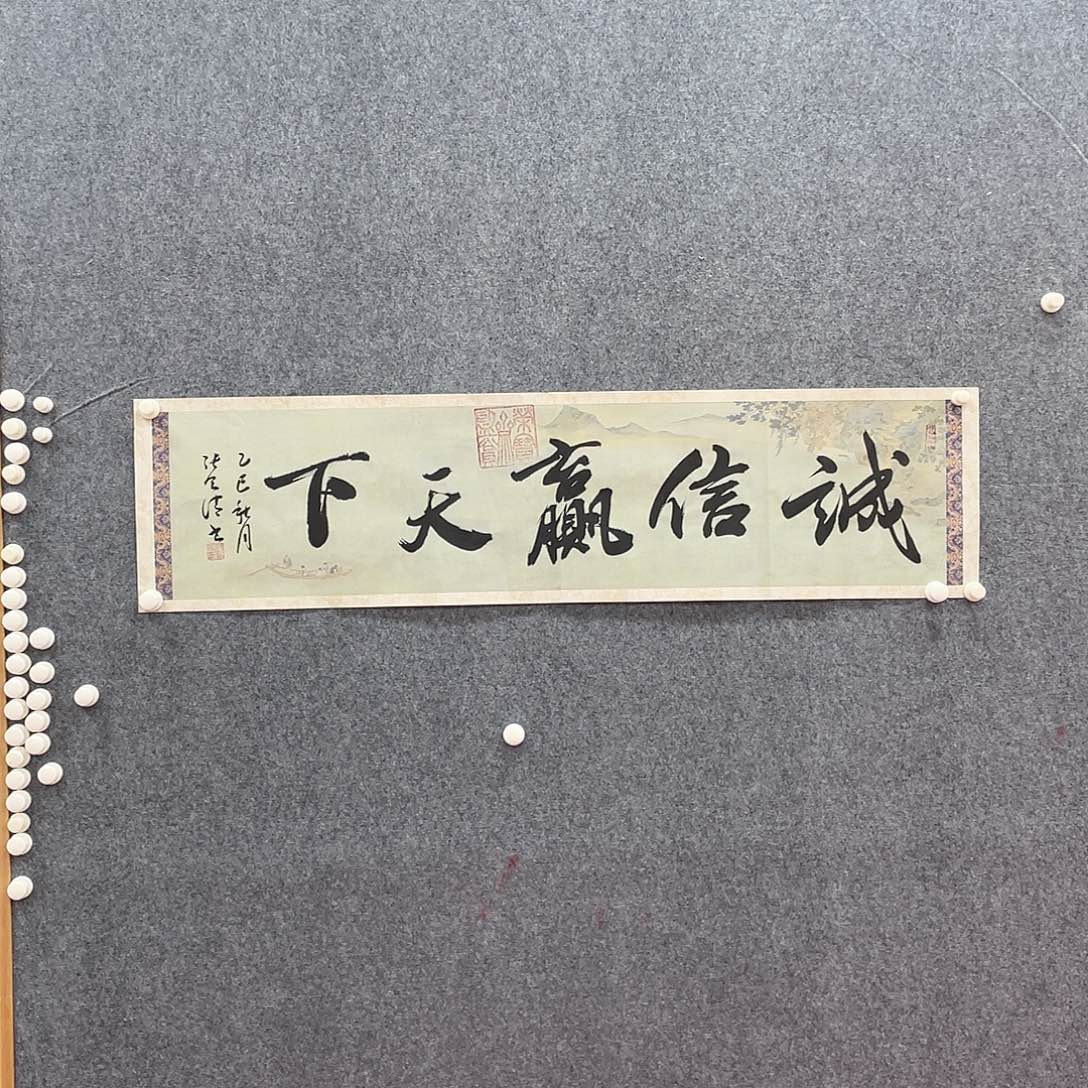 誠信贏天下
乙巳秋月